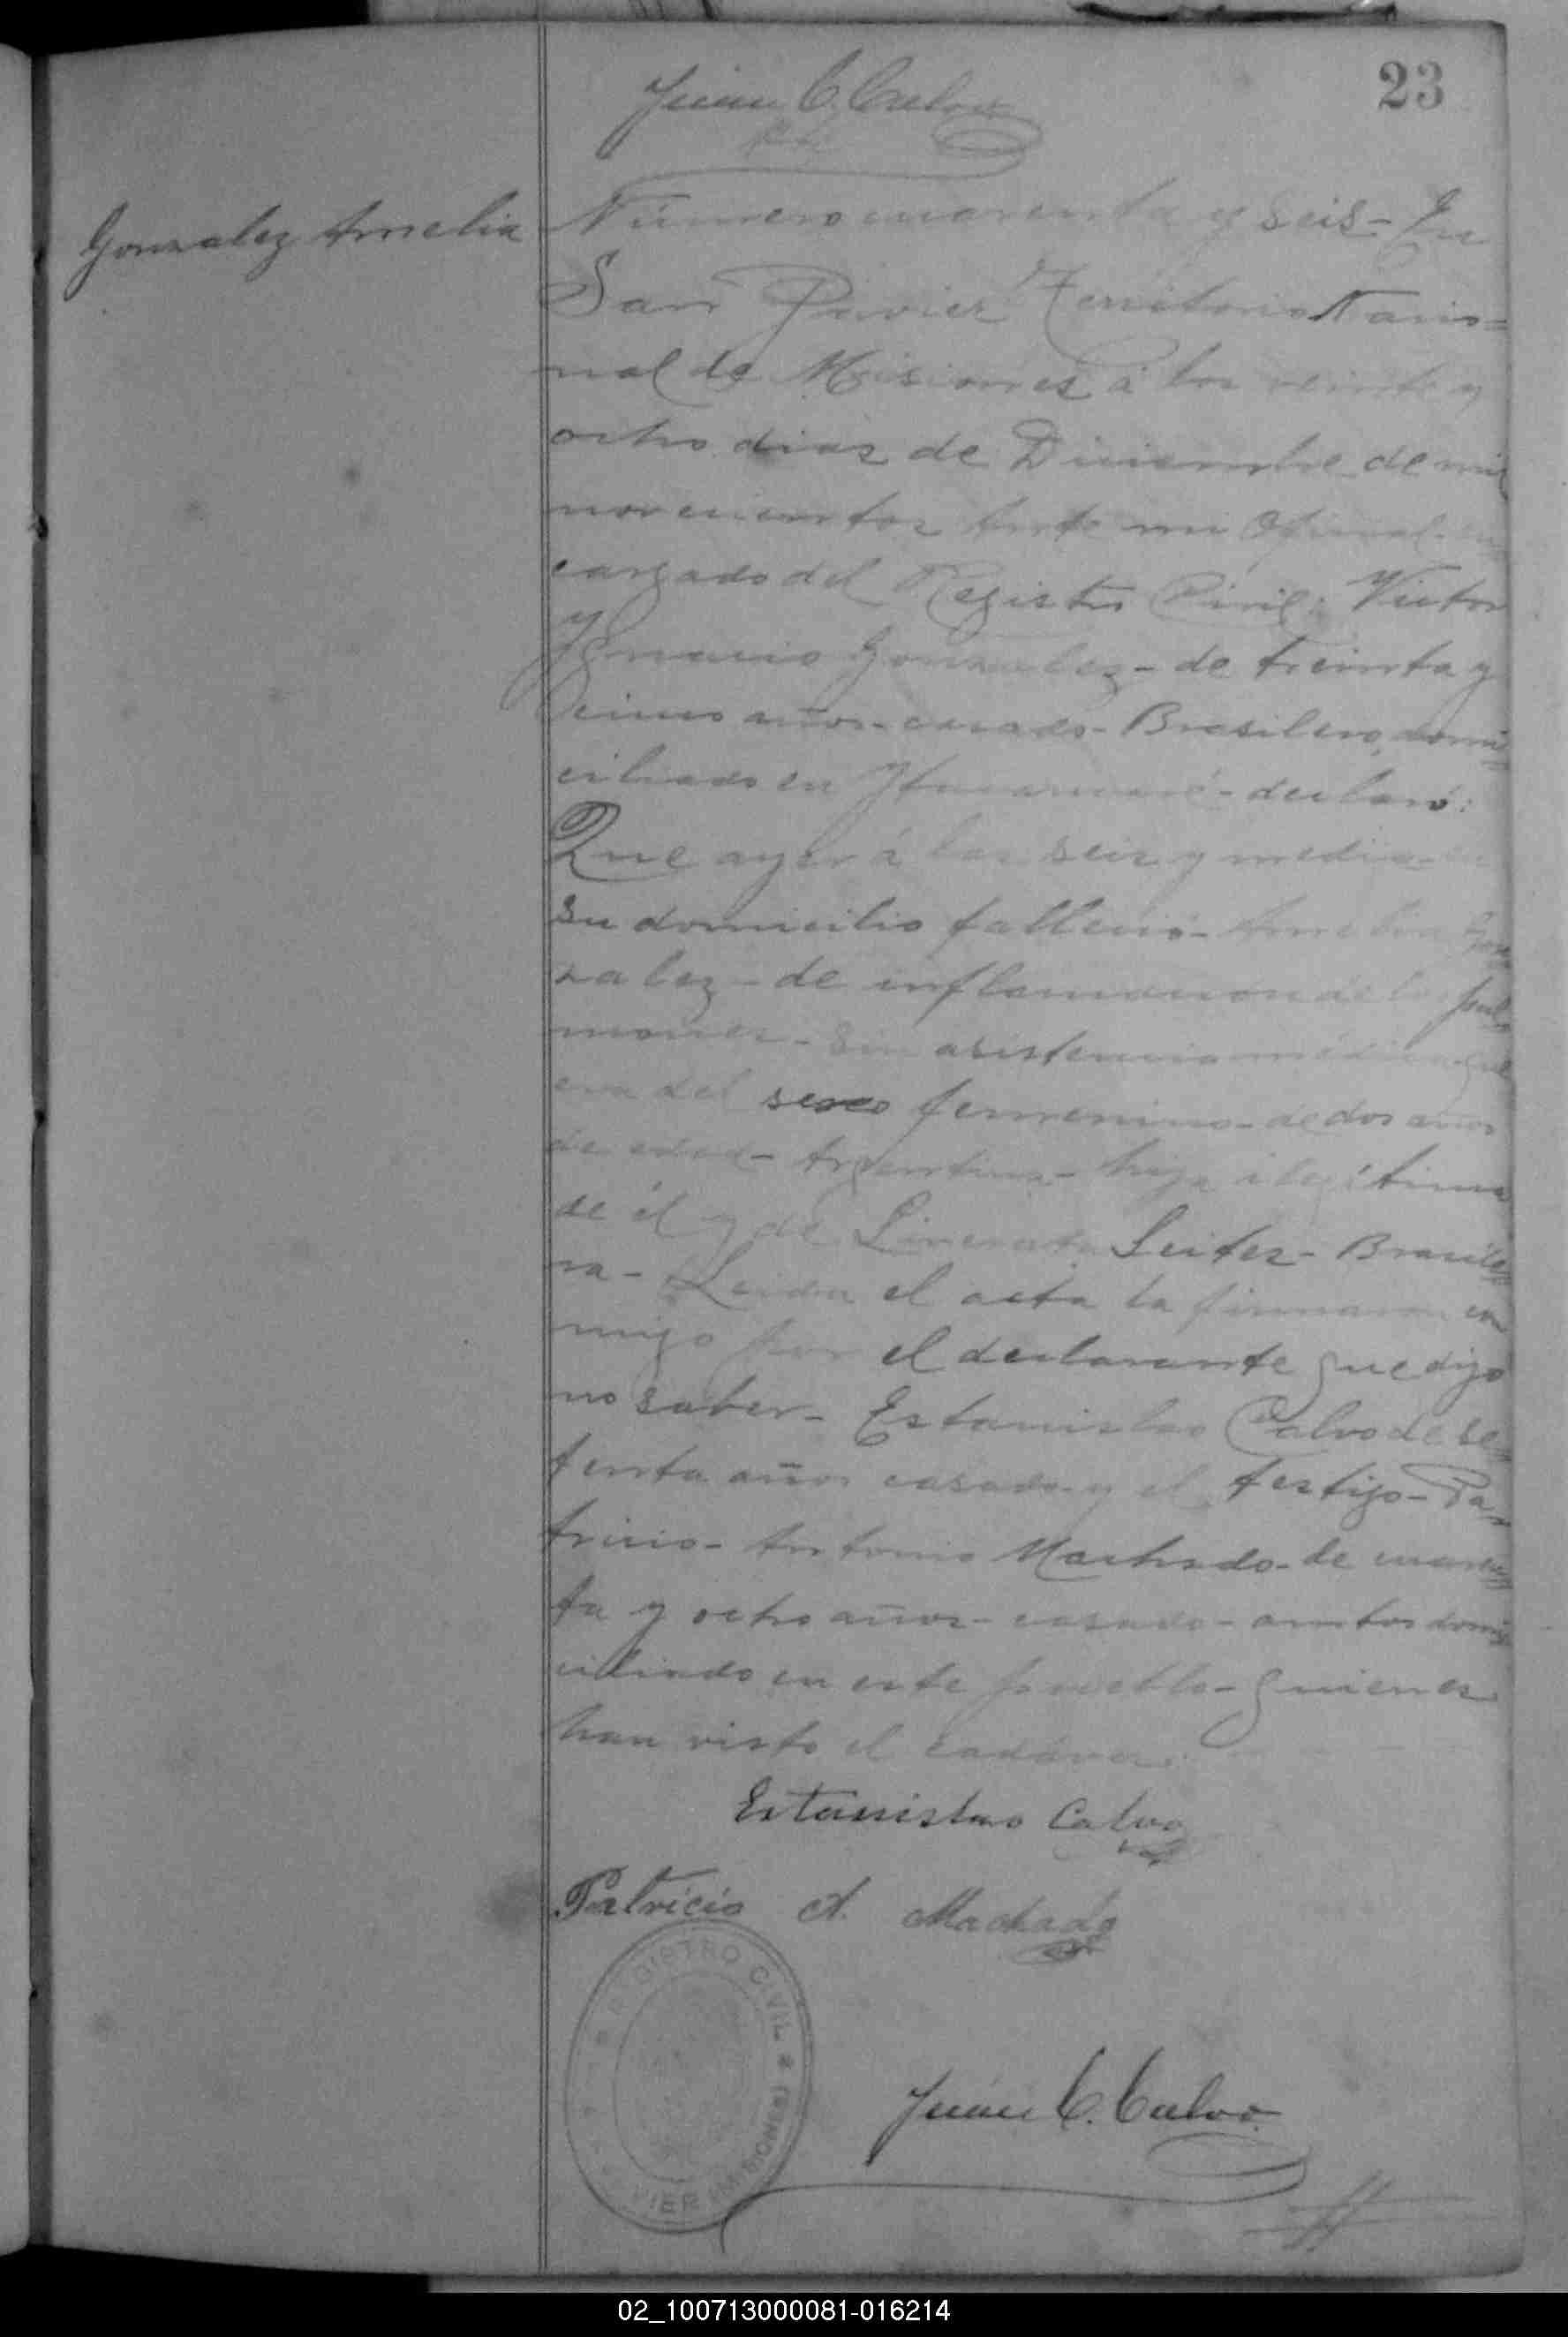 23
Juan C. Calvo
Gonzalez Amelia
Número cuarenta y seis - En
San Javier Territorio Nacio=
nal de Misiones á los veinte y
ocho dias de Diciembre de mil
novecientos Ante mi Oficial en
cargado del Registro Civil: Victor
Ygnacio Gonzalez - de treinta y
cinco años - casado - Brasilero, domi=
ciliado en - declaró:
Que ayer á las seis y media en
su domicilio falleció - Amelia Gon=
zalez - de inflamacion de los pul=
mones - sin asistencia médica - que
era del sexo femenino - de dos años
de edad - Argentina - hija ilegítima
de él y de Leites - Brasile=
ra - Leida el acta la firmaron con
migo por el declarante que dijo
no saber - Estanislao Calvo de se=
tenta años casado y el testigo - Pa=
tricio - Antonio Machado - de cuaren=
ta y ocho años - casado - ambos domi=
ciliado en este pueblo - quienes
han visto el cadáver.
Estanislao Calvo
Patricio A. Machado
REGISTRO CIVIL
VIER (MISIONES)
Juan C. Calvo
02_100713000081-016214